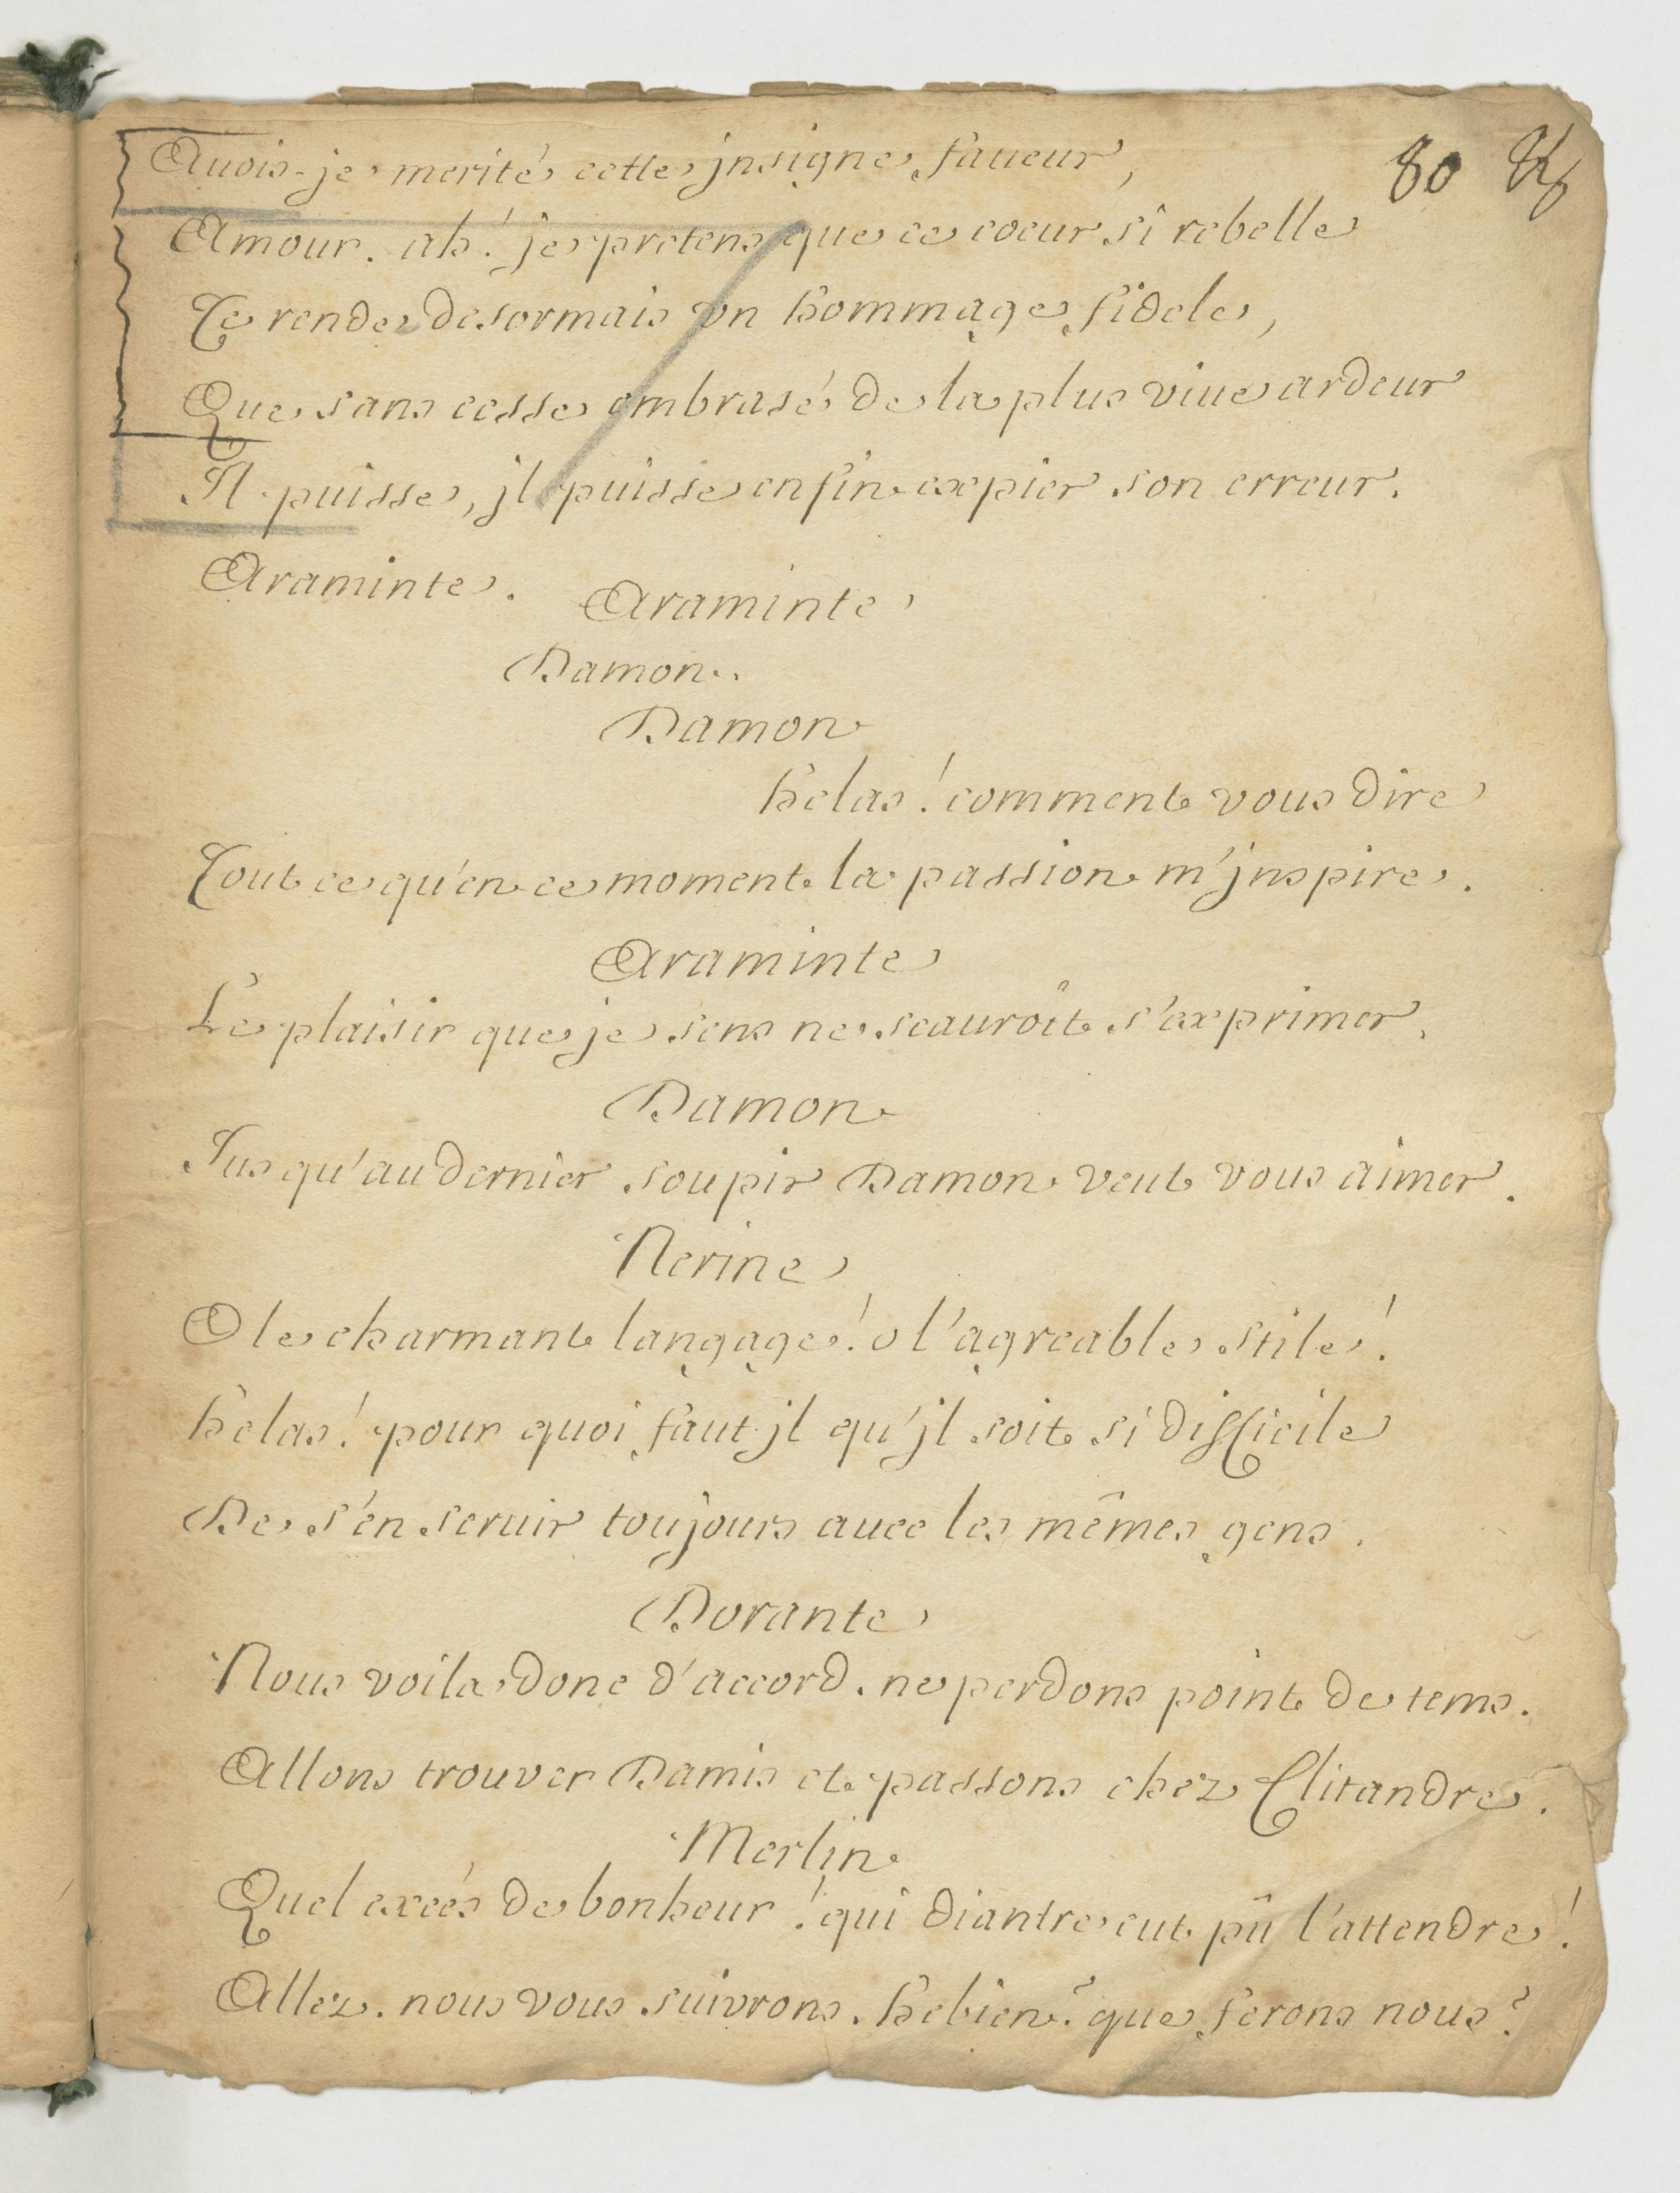 Auois-je merité cette jnsigne faueur,
80
Amour. ah! je pretens que ce coeur si rebelle
Te rende desormais vn hommage fidele,
Que sans cesse embrasé de la plus viue ardeur
Il puisse, jl puisse enfin expier son erreur.
Araminte. Araminte
Damon.
Damon
helas! comment vous dire
Tout ce qu'en ce moment la passion m'jnspire.
Araminte
Le plaisir que je sens ne scauroit s'exprimer.
Damon
Jusqu'au dernier soupir Damon veut vous aimer.
Nerine
O le charmant langage! o l'agreable stile!
helas! pour quoi faut jl qu'jl soit si difficile
De s'en seruir toujours auec les mêmes gens.
Dorante
Nous voila donc d'accord. ne perdons point de tems.
Allons trouver Damis et passons chez Clitandre.
Merlin
Quel excés de bonheur! qui diantre eut pû l'attendre!
Allez. nous vous suivrons. hebien? que ferons nous?